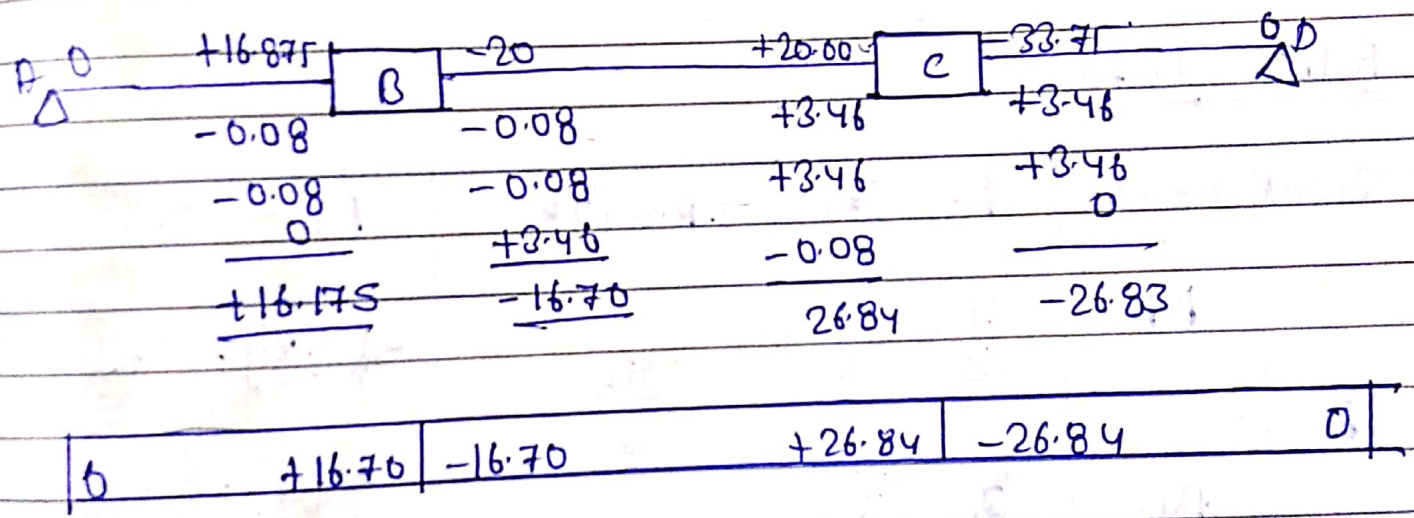 A 0 +16.875 B -20 +20.00 C -33.75 0 D
-0.08 -0.08 +3.46 +3.46
-0.08 -0.08 +3.46 +3.46
0 +3.46 -0.08 0
+16.175 -16.70 26.84 -26.83
0 +16.70 -16.70 +26.84 -26.84 0